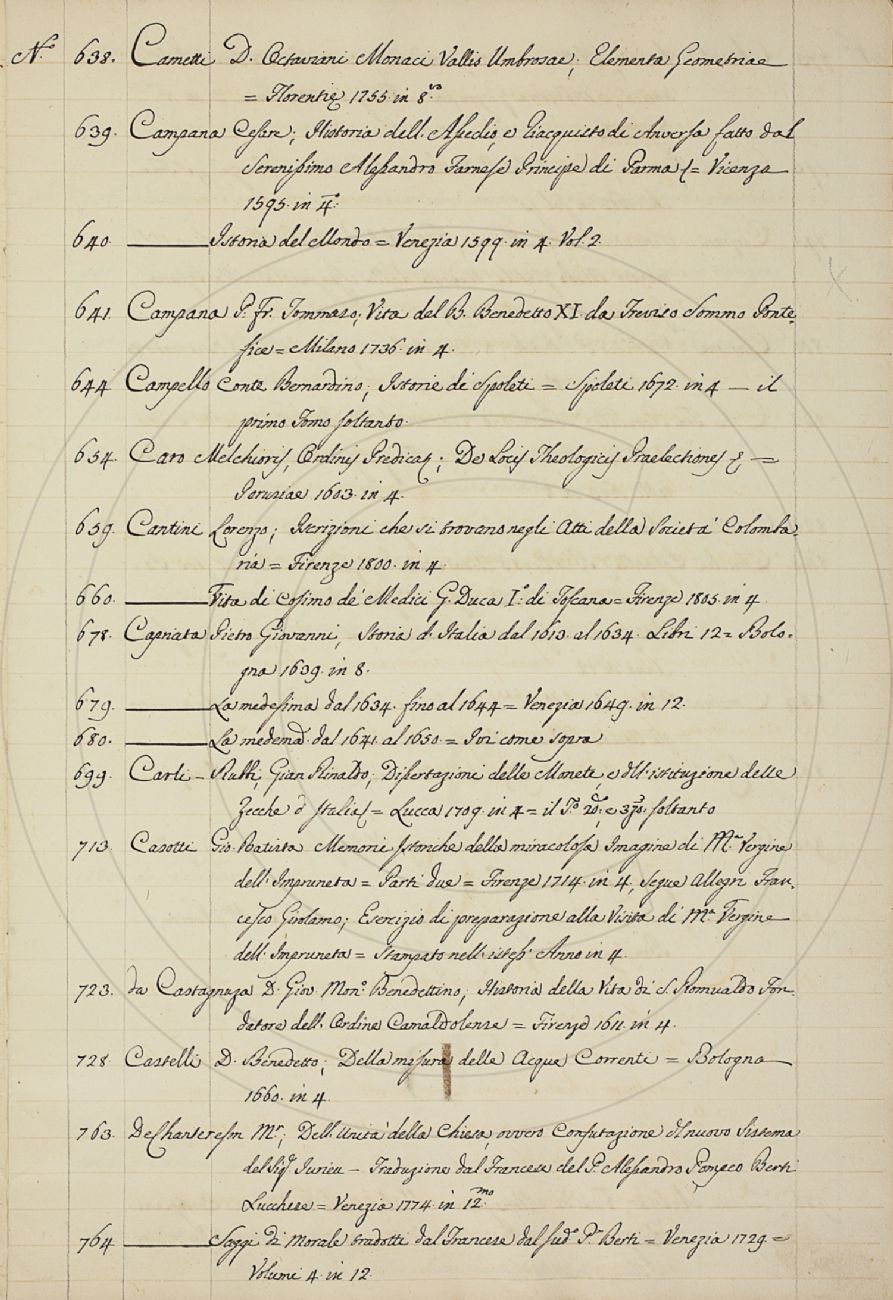 N.º 638. Cametti D. Octaviani Monaci Vallis Umbrosae; Elementa Geometriae
= Florentiæ 1755. in 8.vo
639. Campana Cesare; Historia dell'Assedio, e Riacquisto di Anversa fatto dal
Serenissimo Alessandro Farnese Principe di Parma = Vicenza
1595. in 4.º
640. ——— Istoria del Mondo = Venezia 1599. in 4. Vol. 2.
641. Campana P. Fr. Tommaso; Vita del B. Benedetto XI. da Treviso Sommo Ponte-
fice = Milano 1736. in 4.
644. Campello Conte Bernardino; Istorie di Spoleti = Spoleti 1672. in 4 — il
primo Tomo soltanto.
654. Caro Melchioris, Ordinis Predicat; De Locis Theologicis Praelectiones =
Perusiae 1603. in 4.
659. Cantini Lorenzo; Iscrizioni che si trovano negli Atti della Società Colomba-
ria = Firenze 1800. in 4.
660. ——— Vita di Cosimo de' Medici G. Duca I.º di Toscana = Firenze 1805. in 4.
678. Capriata Pietro Giovanni, Storia d'Italia dal 1613. al 1634. Libri 12 = Bolo-
gna 1639. in 8.
679. ——— La medesima dal 1634. fino al 1644 = Venezia 1649. in 12.
680. ——— La medema dal 1641. al 1650. = Ivi come sopra
699. Carli - Rubbi, Gian Rinaldo; Dissertazioni delle Monete, e dell'istituzione delle
Zecche d'Italia = Lucca 1709. in 4 = il T.º 2º, e 3º soltanto
713. Casotti Gio. Batista Memorie Istoriche della miracolosa Imagine di M.ª Vergine
dell'Impruneta = Parti due = Firenze 1714. in 4, segue Allegri Fran-
cesco Girolamo; Esercizio di preparazione alla Visita di M.ª Vergine
dell'Impruneta = Stampato nell'istess' Anno in 4.
723. da Castagniza D. Giov. Mon.º Benedettino; Historia della Vita di S. Romualdo Fon-
datore dell'Ordine Camaldolense = Firenze 1611. in 4.
728. Castelli D. Benedetto; Della misura delle Acque Correnti = Bologna
1660. in 4.
763. M.r; Dell'Unità della Chiesa, ovvero Confutazione del nuovo Sistema
del Sig.r Jurieu - Traduzione dal Francese del P. Alessandro Pompeo Berti
Lucchese = Venezia 1774. in 12.mo
764. ——— Saggi di Morale tradotti dal Francese dal sud.º P. Berti = Venezia 1729 =
Volumi 4. in 12.